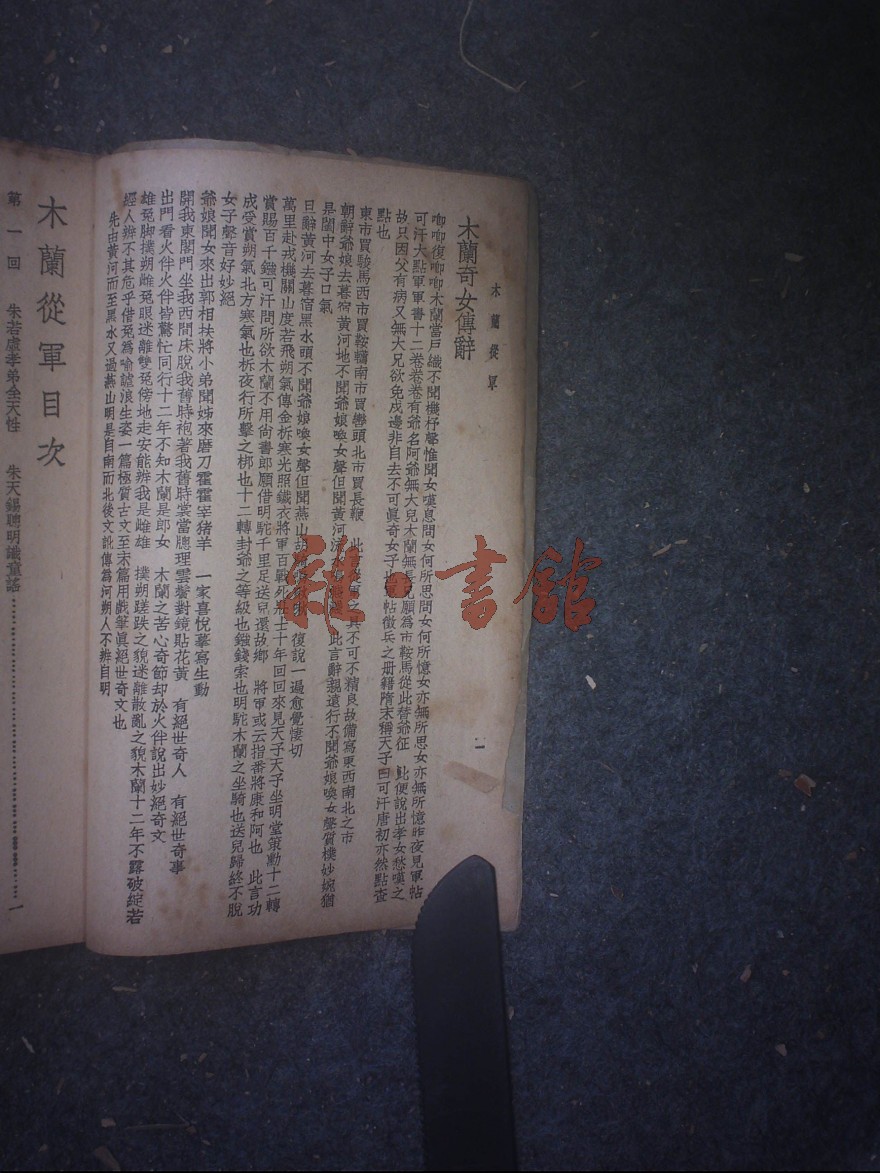 木蘭從軍
一
木蘭奇女傳辭
唧唧復唧唧木蘭當戶織不聞機杼聲惟聞女嘆息問女何所思問女何所憶女亦無所思女亦無所憶昨夜見軍帖
可汗大點軍軍書十二卷卷卷有爺名阿爺無大兒木蘭無長兄願爲市鞍馬從此替爺征 此便說出孝女愁嘆之
故只因父有病又無大兄欲免戍邊非自去不可眞奇女子也 帖徵兵之册籍隋末稱天子曰可汗唐初亦然點查
點也
東市買駿馬西市買鞍韉南市買轡頭北市買長鞭 此 軍之具不可不精良故備寫東西南北之市
朝辭爺娘去暮宿黃河地不聞爺娘喚女聲但聞黃河流 此言辭親遠行不聞爺娘喚女聲質樸妙婉猶
是閨中女子口氣
旦辭黃河去暮宿黑水頭不聞爺娘喚女聲但聞燕山胡 復說一遍愈覺悽切
萬里赴戎機關山度若飛朔氣傳金柝寒光照鐵衣將軍百戰死 士十年回回來見天子天子坐明堂策勳十二轉
賞賜百千鏹可汗問所欲木蘭不用尚書郎願借明駝千里足送兒還故鄉 將軍或云指番將康和阿也 此言功
成受賞朔氣北方寒氣也柝夜行所擊之梆也十二轉封爺之等級也鏹錢索也明駝木蘭之坐騎也送兒歸終不脫
女子聲音好妙絕
爺娘聞女來出郭相扶將小弟聞姊來磨刀霍霍宰猪羊 一家喜悅摹寫生動
開我東閣門坐我西間床脫我舊時袍著我舊時裳當牕理雲鬢對鏡貼花黃 有絕世奇人 有絕世奇事
出門看火伴火伴皆驚忙同行十二年不知木蘭是郎女 木蘭之苦心奇節却於火伴說出妙絕奇文
雄兎脚撲朔雌兎眼迷離雙兎傍地走安能辨我是雌雄 撲朔蹉跌之貌迷離散亂之貌木蘭十二年不露破綻若
經人辨不其危乎借兎爲喻謔浪生姿一篇極質古文至末篇用戲筆眞絕世奇文也
先由黃河而至黑水又過燕山明是自南而北後文訛傳爲河朔人不辨自明
木蘭從軍目次
第一回 朱若虛孝弟全天性 朱天錫聰明識童謠…………………一